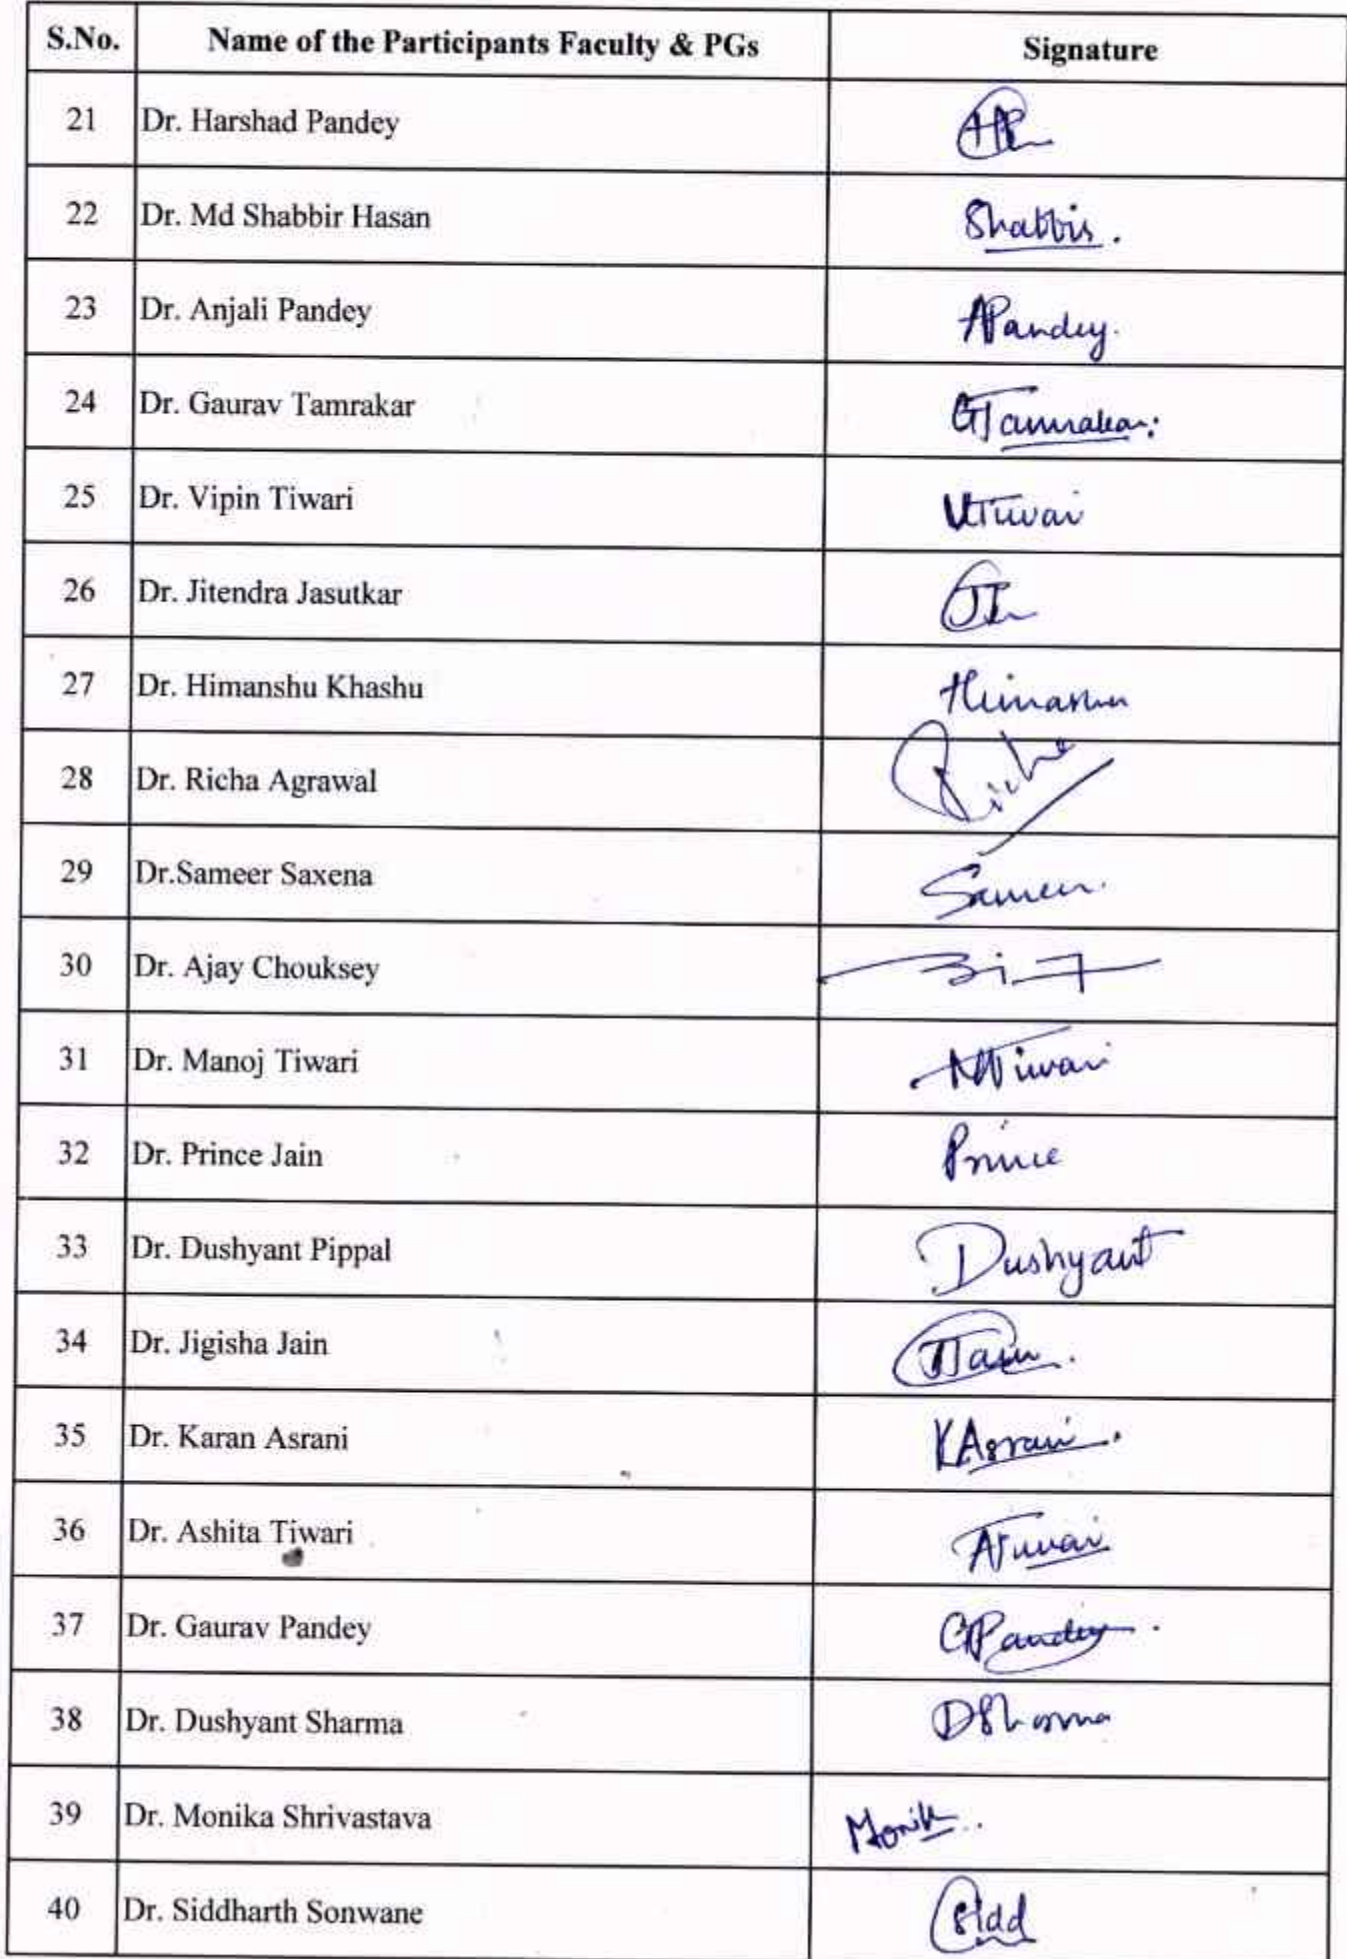 S.No. Name of the Participants Faculty & PGs Signature
21 Dr. Harshad Pandey HP
22 Dr. Md Shabbir Hasan Shabbir.
23 Dr. Anjali Pandey APandey.
24 Dr. Gaurav Tamrakar GTamrakar
25 Dr. Vipin Tiwari VTiwari
26 Dr. Jitendra Jasutkar
27 Dr. Himanshu Khashu Himanshu
28 Dr. Richa Agrawal Richa
29 Dr.Sameer Saxena Sameer.
30 Dr. Ajay Chouksey
31 Dr. Manoj Tiwari MTiwari
32 Dr. Prince Jain Prince
33 Dr. Dushyant Pippal Dushyant
34 Dr. Jigisha Jain JJain.
35 Dr. Karan Asrani KAsrani.
36 Dr. Ashita Tiwari ATiwari
37 Dr. Gaurav Pandey GPandey.
38 Dr. Dushyant Sharma DSharma
39 Dr. Monika Shrivastava Monika
40 Dr. Siddharth Sonwane Sidd